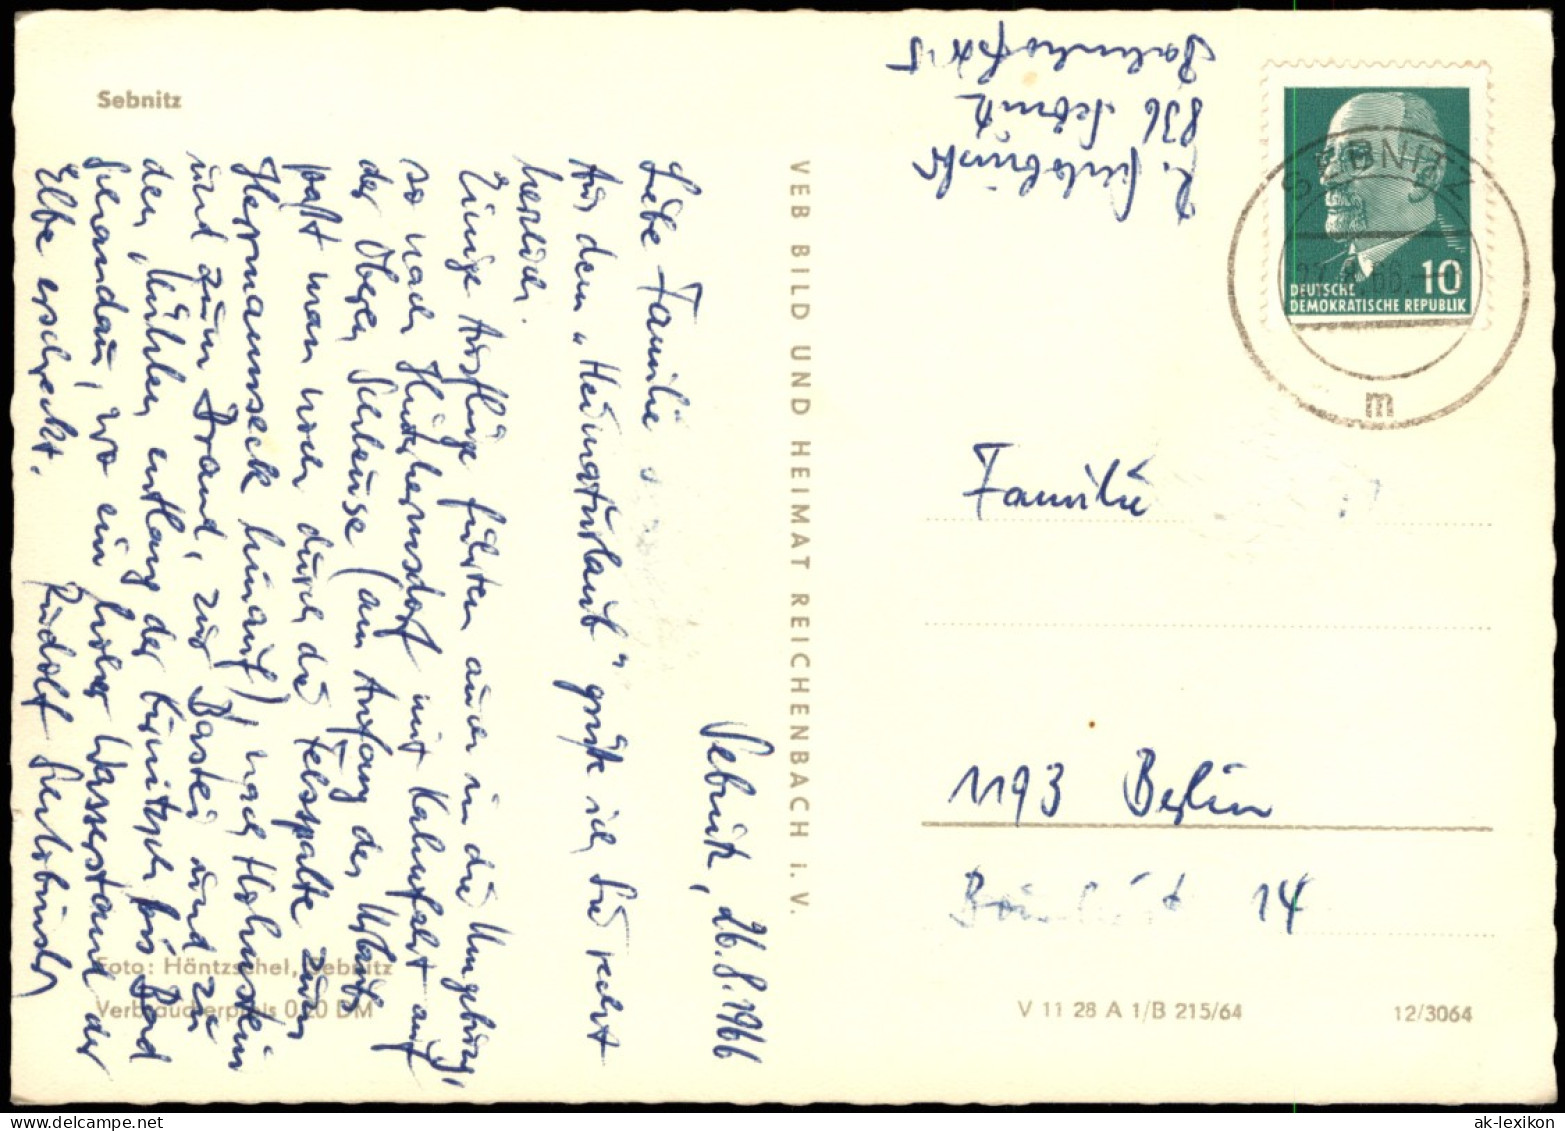 Sebnitz
Sebnitz, 26.8.1966
Liebe Familie
Aus dem „Heimaturlaub" grüße ich Sie recht
herzlich.
Einige Ausflüge führten auch in die Umgebung,
so nach Hinterhermsdorf mit Kahnfahrt auf
der Oberen Schleuse (am Anfang des Urlaubs
paßt man noch durch die Felsspalte zum
Hermannseck hinauf), nach Hohnstein
und zum Brand, zur Bastei und zu
den Mühlen entlang der Kirnitzsch bis Bad
Schandau, wo ein hoher Wasserstand der
Elbe erschreckt.
Rudolf
VEB BILD UND HEIMAT REICHENBACH i. V.
Foto: Häntzschel, Sebnitz
Verbraucherpreis 0,20 DM
R.
836 Sebnitz
Bahnhofstr 15
SEBNITZ
27.8.66.
m
10
DEUTSCHE
DEMOKRATISCHE REPUBLIK
Familie
1193 Berlin
14
V 11 28 A 1/B 215/64
12/3064
ak-lexikon.com